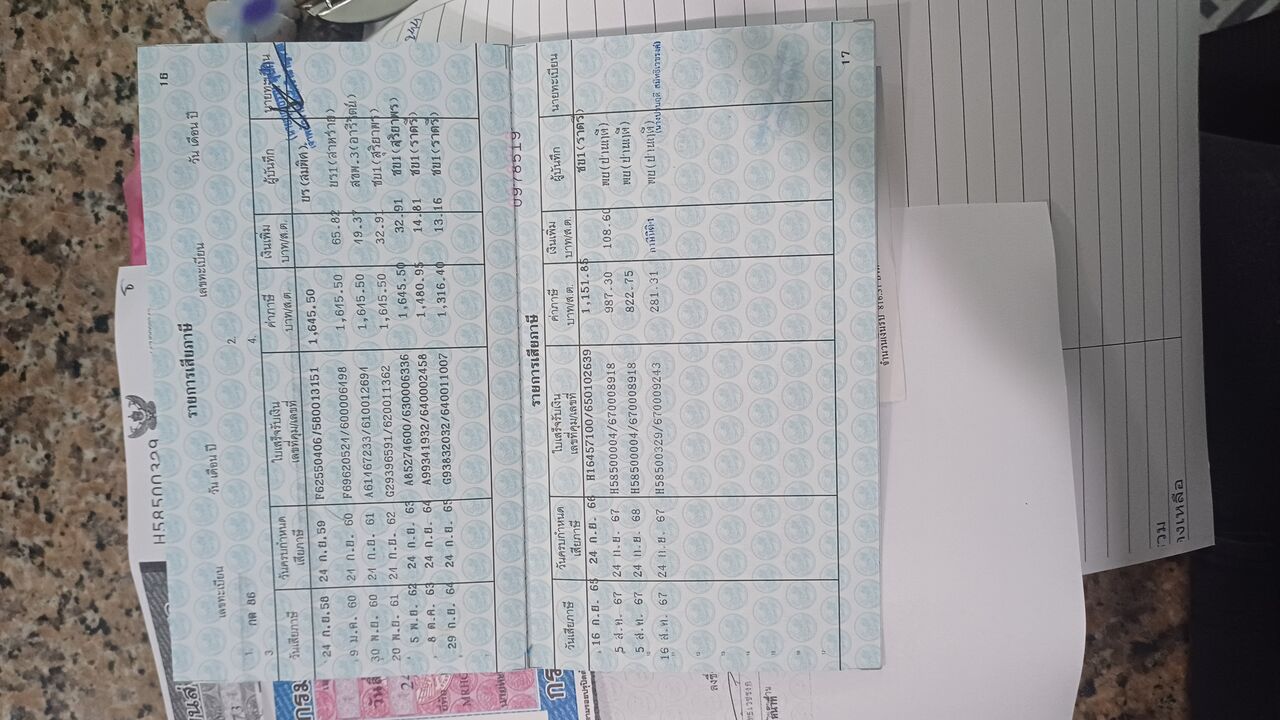 16
รายการเสียภาษี
เลขทะเบียน วัน เดือน ปี เลขทะเบียน วัน เดือน ปี
1. กต 86 2.
3 4.
วันเสียภาษี วันครบกำหนดเสียภาษี ใบเสร็จรับเงิน เลขที่คุม/เลขที่ ค่าภาษี บาท/ส.ต. เงินเพิ่ม บาท/ส.ต. ผู้บันทึก นายทะเบียน
24 ก.ย.58 24 ก.ย.59 F62550406/580013151 1,645.50 ยร(สมคิด)
9 ม.ค. 60 24 ก.ย. 60 F69620524/600006498 1,645.50 65.82 ยร1(สาหร่าย)
30 พ.ย. 60 24 ก.ย. 61 A61467233/610012694 1,645.50 49.37 สชพ.3(อารีรัตน์)
20 พ.ย. 61 24 ก.ย. 62 G29396591/620011362 1,645.50 32.91 ชบ1(สุริยาพร)
5 พ.ย. 62 24 ก.ย. 63 A85274600/630006336 1,645.50 32.91 ชบ1(สุริยาพร)
8 ต.ค. 63 24 ก.ย. 64 A99341932/640002458 1,480.95 14.81 ชบ1(ราตรี)
29 ก.ย. 64 24 ก.ย. 65 G93832032/640011007 1,316.40 13.16 ชบ1(ราตรี)
0978519
รายการเสียภาษี
วันเสียภาษี วันครบกำหนดเสียภาษี ใบเสร็จรับเงิน เลขที่คุม/เลขที่ ค่าภาษี บาท/ส.ต. เงินเพิ่ม บาท/ส.ต. ผู้บันทึก นายทะเบียน
16 ก.ย. 65 24 ก.ย. 66 H16457100/650102639 1,151.85 ชบ1(ราตรี)
5 ส.ค. 67 24 ก.ย. 67 H58500004/670008918 987.30 108.60 พย(ปานฤดี)
5 ส.ค. 67 24 ก.ย. 68 H58500004/670008918 822.75 พย(ปานฤดี)
16 ส.ค. 67 24 ก.ย. 67 H58500329/670009243 281.31 พย(ปานฤดี)
17
H58500329